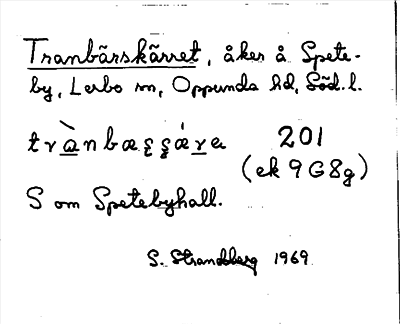 Tranbärskärret, åker å Spete-
by, Lerbo sn, Oppunda hd, Söd. l.
201
(ek 9G8g)
S om Spetebyhall.
S. Strandberg 1969